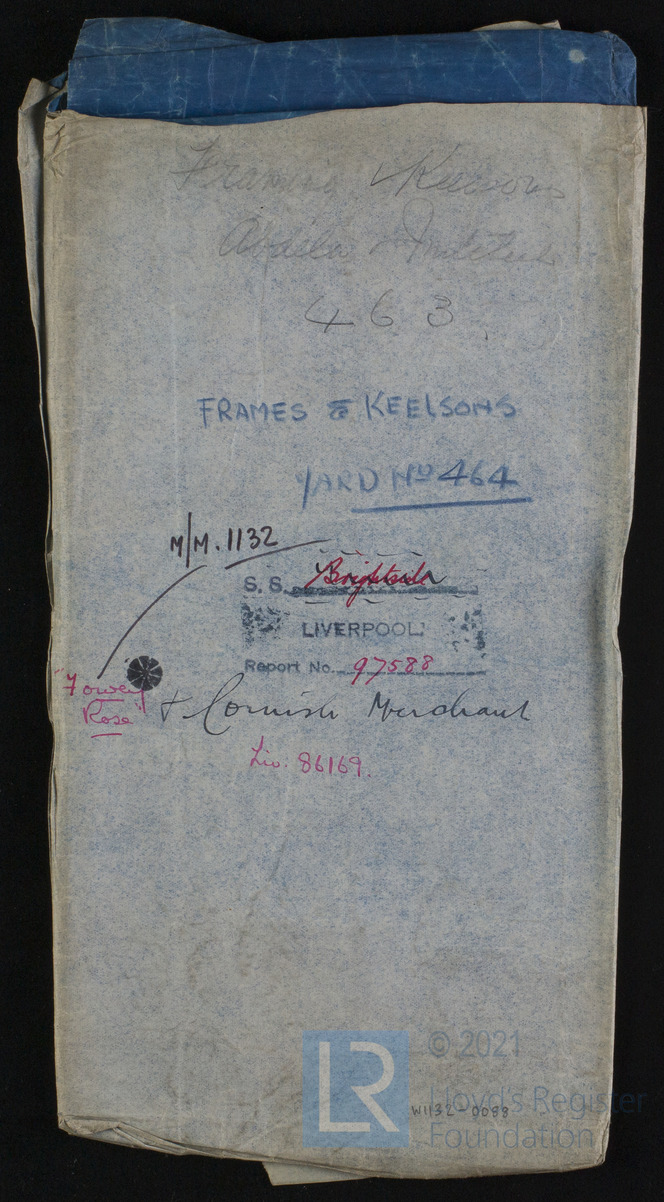 463
FRAMES & KEELSONS
YARD No 464
M/M. 1132
S. S.
LIVERPOOL
Report No. 97588
"Fowey Rose" & Cornish Merchant
Liv. 86169.
W1132-0088
LR
© 2021
Lloyd's Register
Foundation